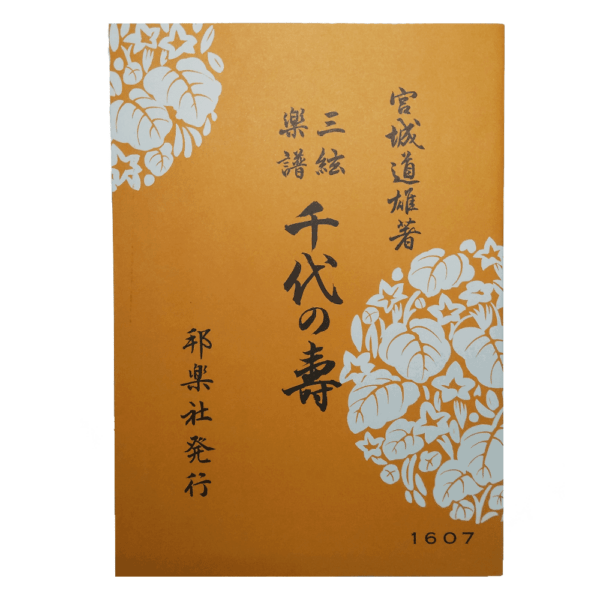 宮城道雄著
三絃
楽譜
千代の壽
邦楽社発行
1607